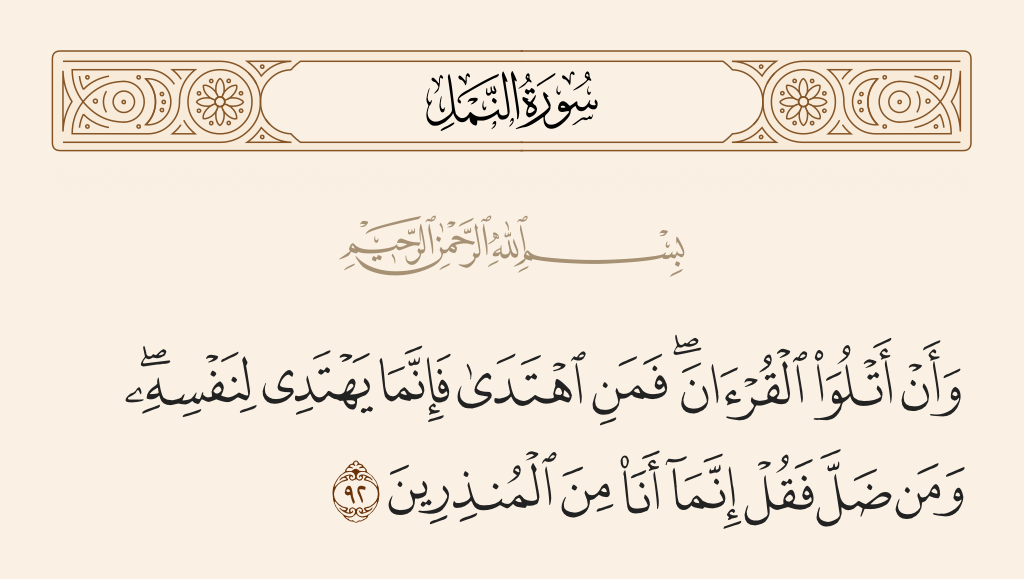 سُورَةُ النَّمۡلِ
بِسۡمِ ٱللَّهِ ٱلرَّحۡمَٰنِ ٱلرَّحِيمِ
وَأَنۡ أَتۡلُوَاْ ٱلۡقُرۡءَانَۖ فَمَنِ ٱهۡتَدَىٰ فَإِنَّمَا يَهۡتَدِي لِنَفۡسِهِۦۖ
وَمَن ضَلَّ فَقُلۡ إِنَّمَآ أَنَا۠ مِنَ ٱلۡمُنذِرِينَ ٩٢